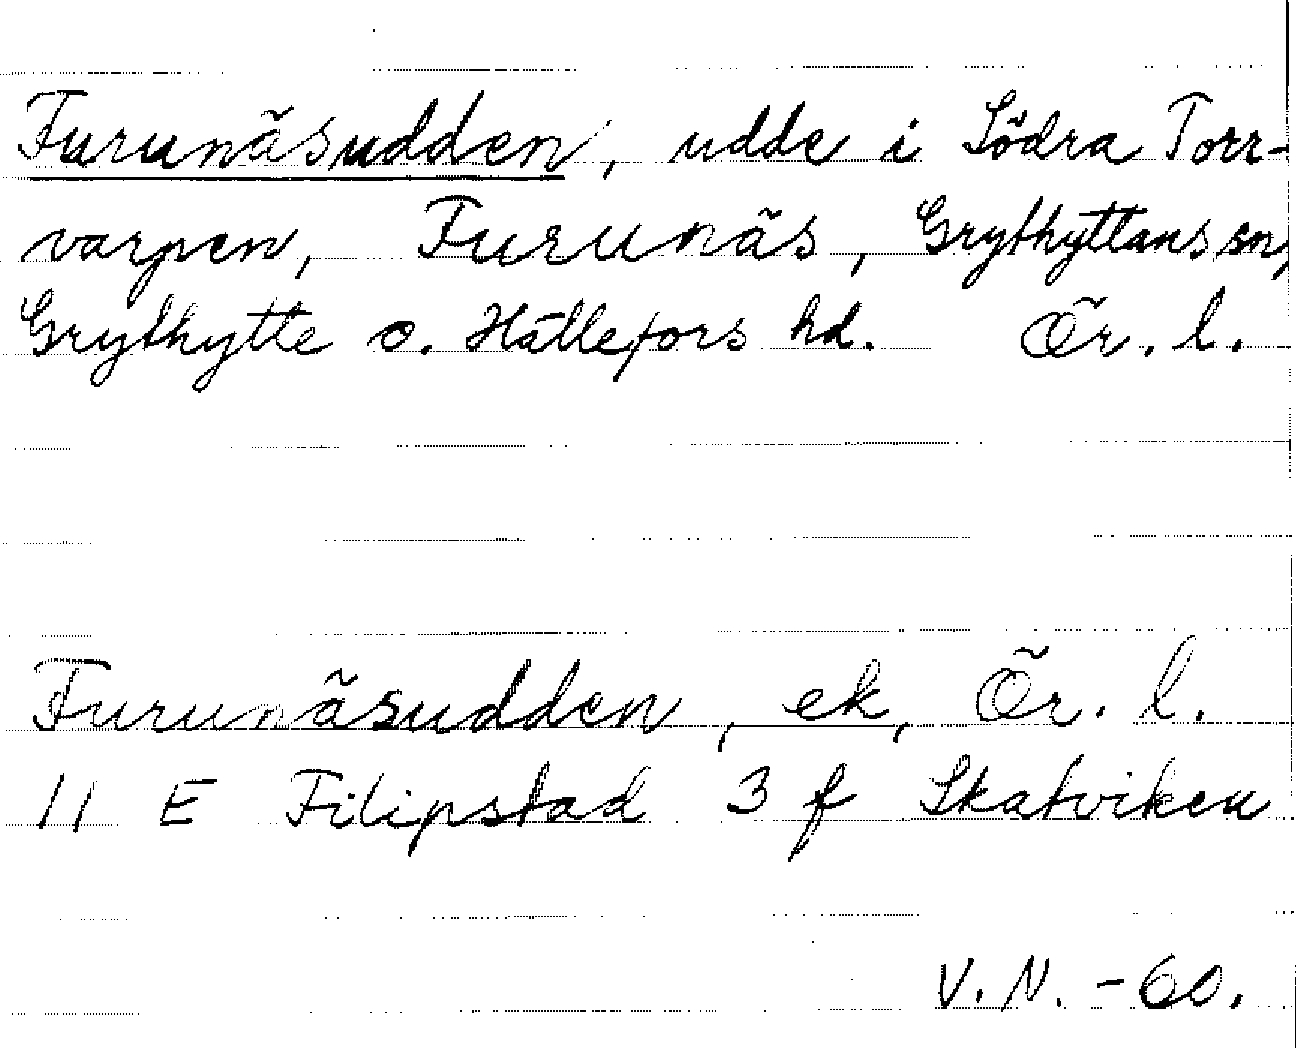 Furunäsudden, udde i Södra Torr-
varpen, Furunäs, Grythyttans sn,
Grythytte o. Hällefors hd. Ör. l.
Furunäsudden, ek, Ör. l.
11 E Filipstad 3 f Skatviken
V.N. -60.